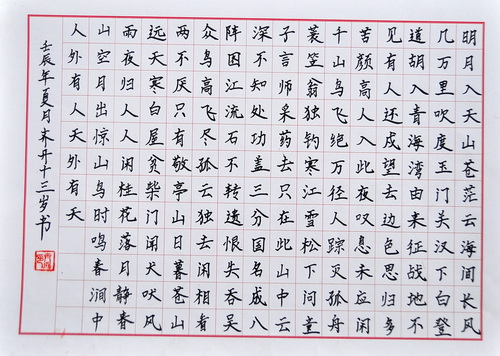 明月入天山苍茫云海间长风
几万里吹度玉门关汉下白登
道胡入青海湾由来征战地不
见有人还戍望去边色思归多
苦颜高人入此夜叹息未应闲
千山鸟飞绝万径人踪灭孤舟
蓑笠翁独钓寒江雪松下问童
子言师采药去只在此山中云
深不知处功盖三分国名成八
阵图江流石不转遗恨失吞吴
众鸟高飞尽孤云独去闲相看
两不厌只有敬亭山日暮苍山
远天寒白屋贫柴门闻犬吠风
雨夜归人人闲桂花落月静春
山空月出惊山鸟时鸣春涧中
人外有人天外有天
壬辰年夏月齐丹十三岁书